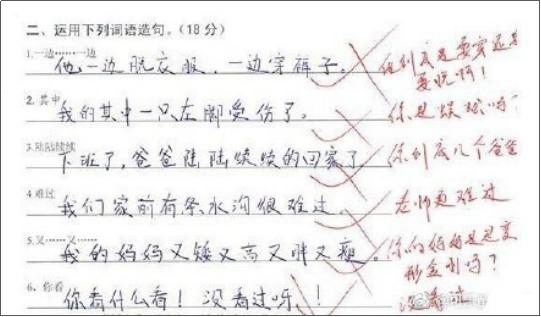 二、运用下列词语造句。(18分)
1.一边……一边
他一边脱衣服,一边穿裤子。
他到底是要穿还是
要脱啊!
2.其中
我的其中一只左脚受伤了。
你是蜈蚣吗?
3.陆陆续续
下班了,爸爸陆陆续续的回家了
你到底几个爸爸
4.难过
我们家前有条水沟很难过.
老师更难过
5.又……又
我的妈妈又矮又高又胖又瘦。
你的妈妈是变
形金刚吗?
6、你看
你看什么看!没看过呀!!
没看过